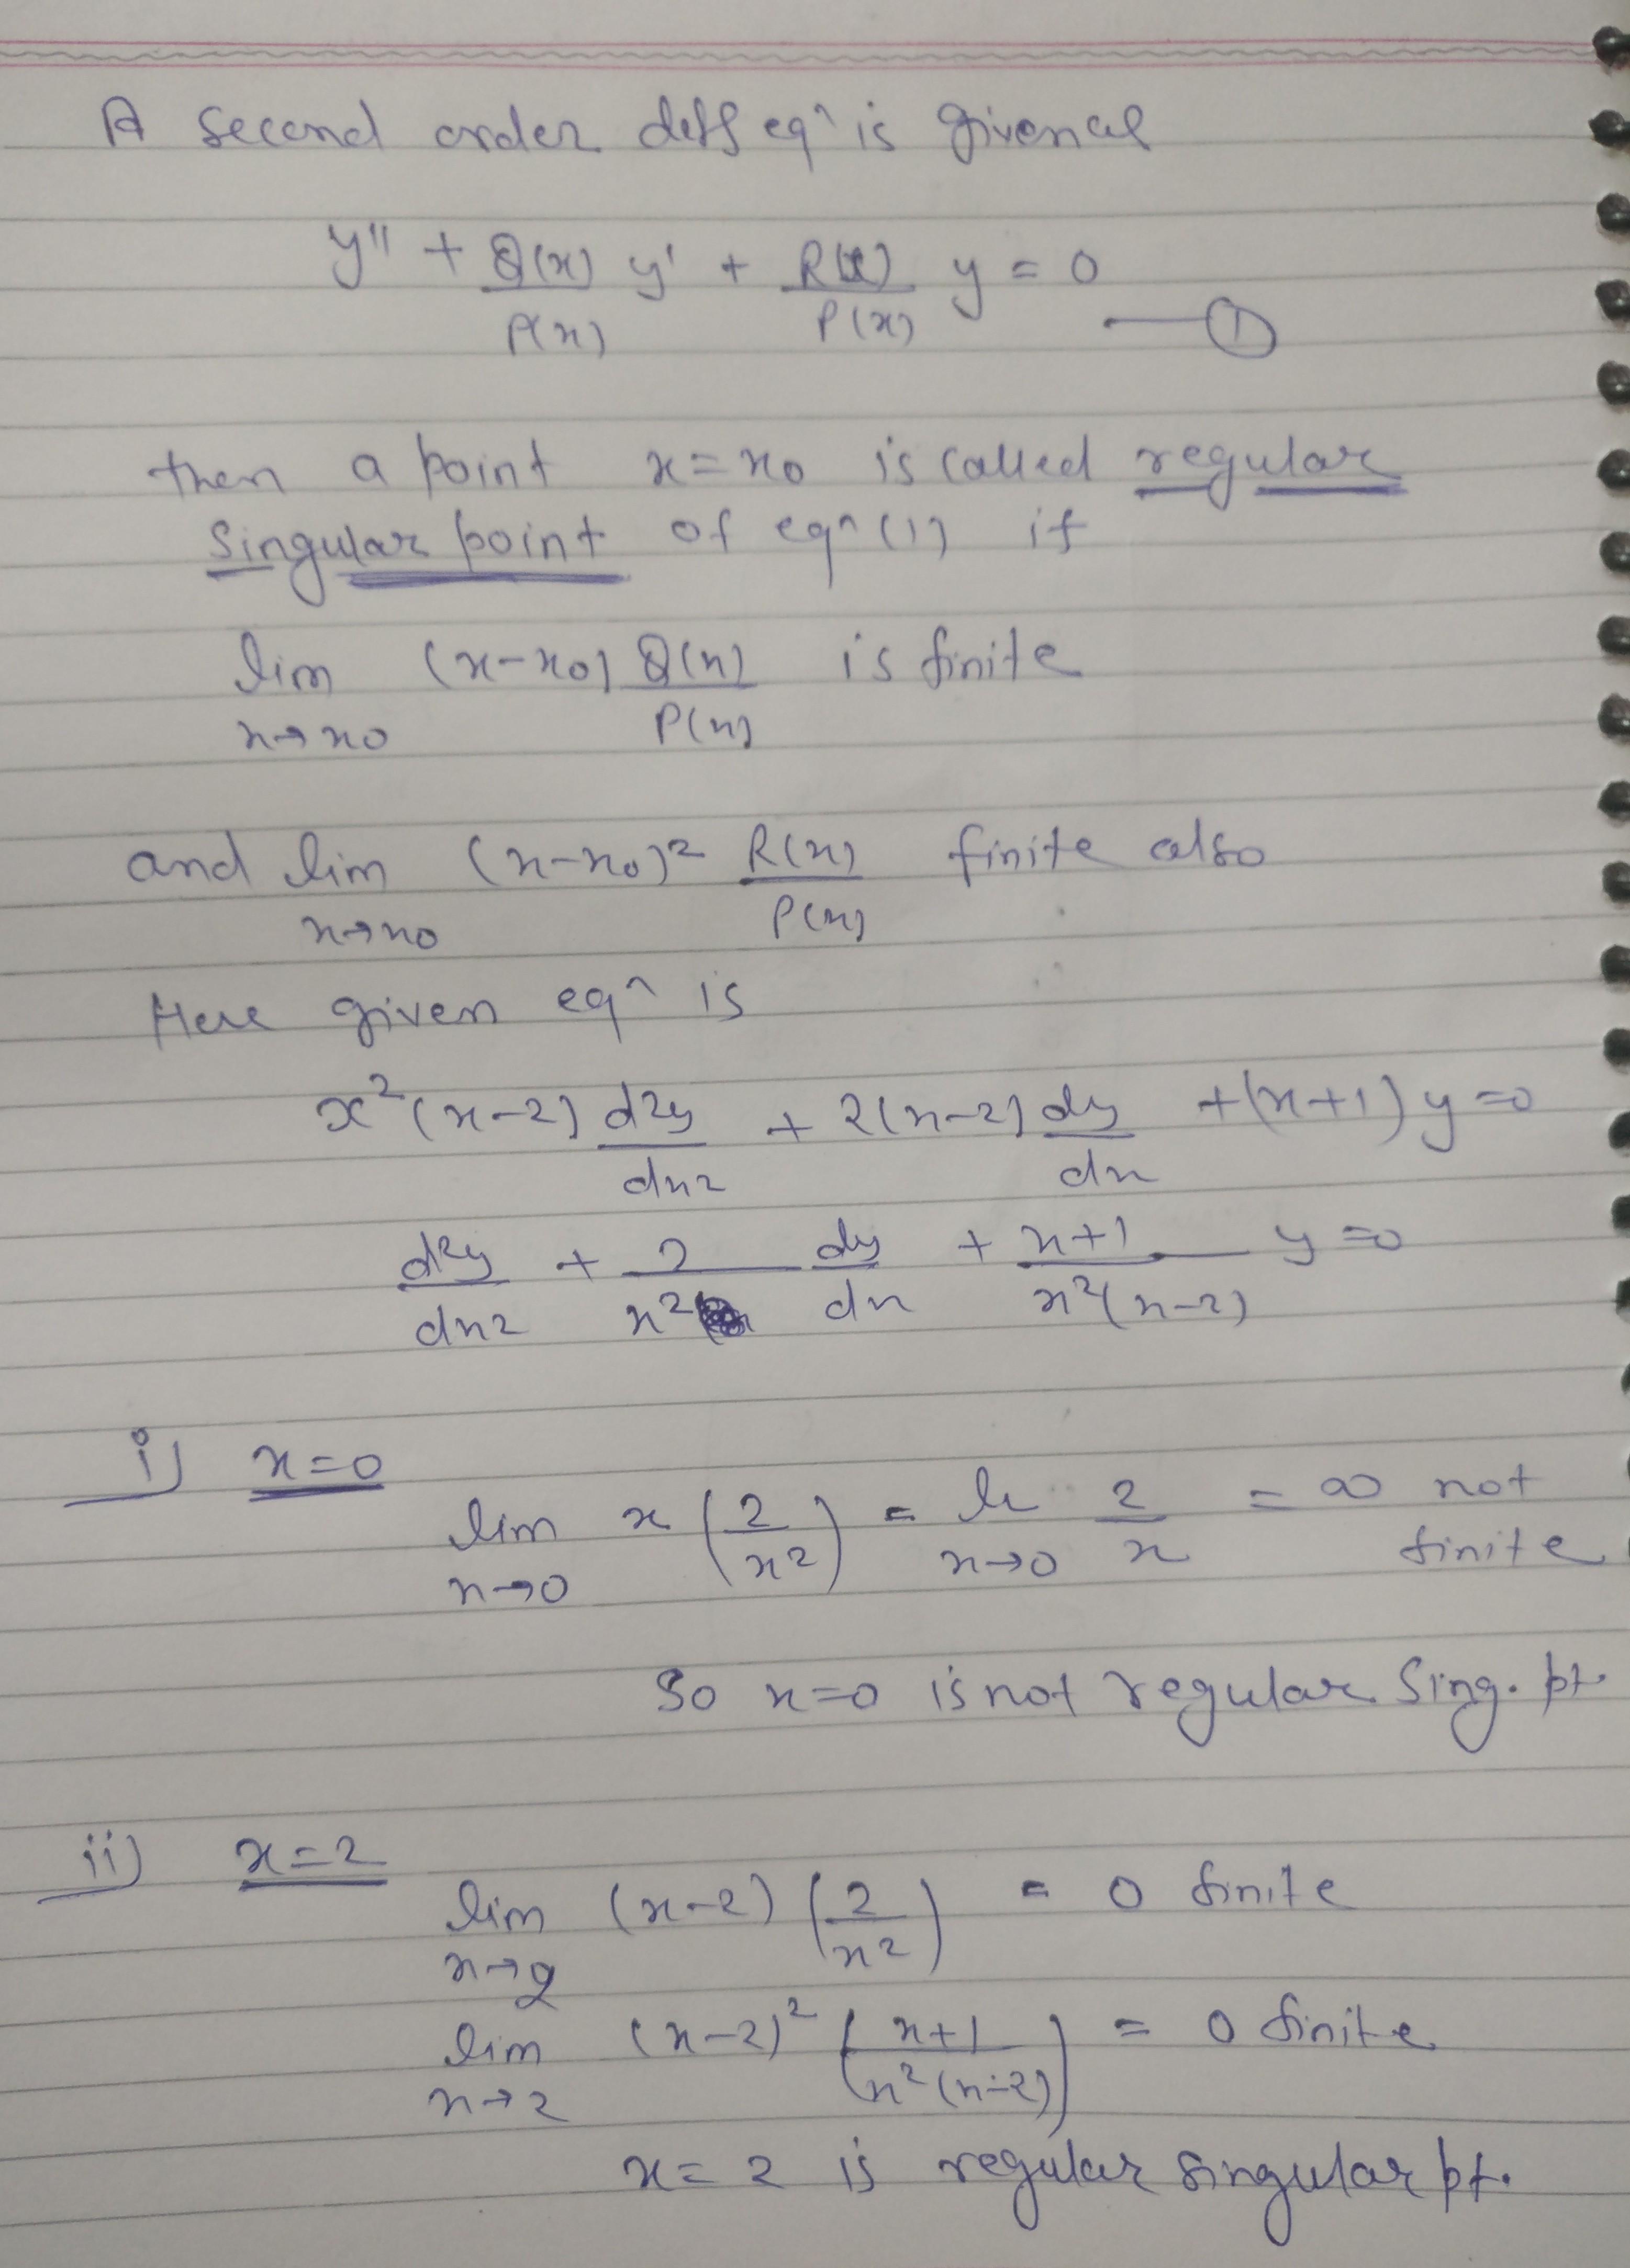 A second order diff eqⁿ is given as
y'' + Q(x)/P(x) y' + R(x)/P(x) y = 0 —①
then a point x = x0 is called regular
singular point of eqⁿ (1) if
lim x→x0 (x-x0) Q(x)/P(x) is finite
and lim x→x0 (x-x0)² R(x)/P(x) finite also
Here given eqⁿ is
x²(x-2) d²y/dx² + 2(x-2) dy/dx + (x+1) y = 0
d²y/dx² + 2/x² dy/dx + x+1/x²(x-2) y = 0
i) x=0
lim x→0 x (2/x²) = lim x→0 2/x = ∞ not finite
So x=0 is not regular sing. pt.
ii) x=2
lim x→2 (x-2) (2/x²) = 0 finite
lim x→2 (x-2)² (x+1/x²(x-2)) = 0 finite
x=2 is regular singular pt.